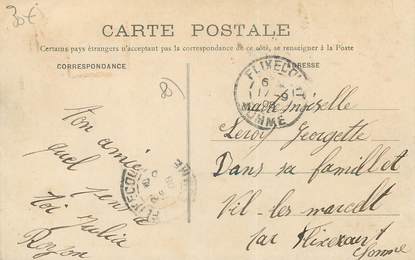 30€
CARTE POSTALE
Certains pays étrangers n'acceptant pas la correspondance de ce côté, se renseigner à la Poste
CORRESPONDANCE
ADRESSE
80
FLIXECOURT
SOMME
6
17 -9
Ton amie
quel
toi Julia
Rozon
FLIXECOU
Mademoiselle
Leroy Georgette
Dans sa famillet
Vil-les marcelt
par Flixecourt
Somme